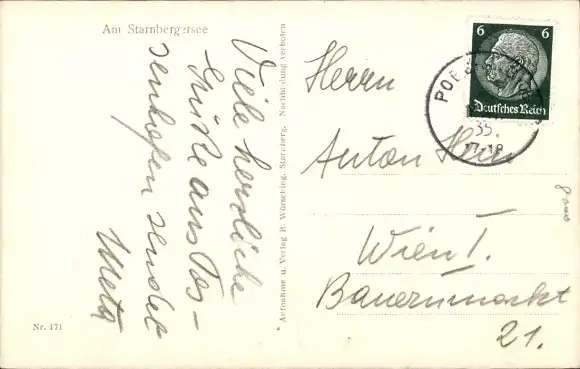 Am Starnbergersee
Viele herzliche
Grüße aus Pos-
senhofen sendet
Meta
Nr. 171
Aufnahme u. Verlag B. Wörsching, Starnberg. Nachbildung verboten
6 6
Deutsches Reich
35.
17-18
Herrn
Anton
Wien I.
Bauernmarkt
21.